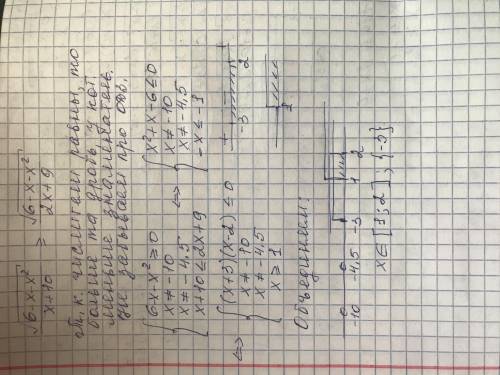 √(6-x-x²)/(x+10) ≥ √(6-x-x²)/(2x+9)
Т.к. числители равны, то
больше та дробь, у кот.
меньше знаменатель,
не забываем про одз.
{ 6-x-x² ≥ 0
x ≠ -10
x ≠ -4,5
x+10 ≤ 2x+9
<=> { x²+x-6 ≤ 0
x ≠ -10
x ≠ -4,5
-x ≤ -1
<=> { (x+3)(x-2) ≤ 0
x ≠ -10
x ≠ -4,5
x ≥ 1
+ - +
-3 2
1
Объединим:
-10 -4,5 -3 1 2
x∈[1;2], {-3}